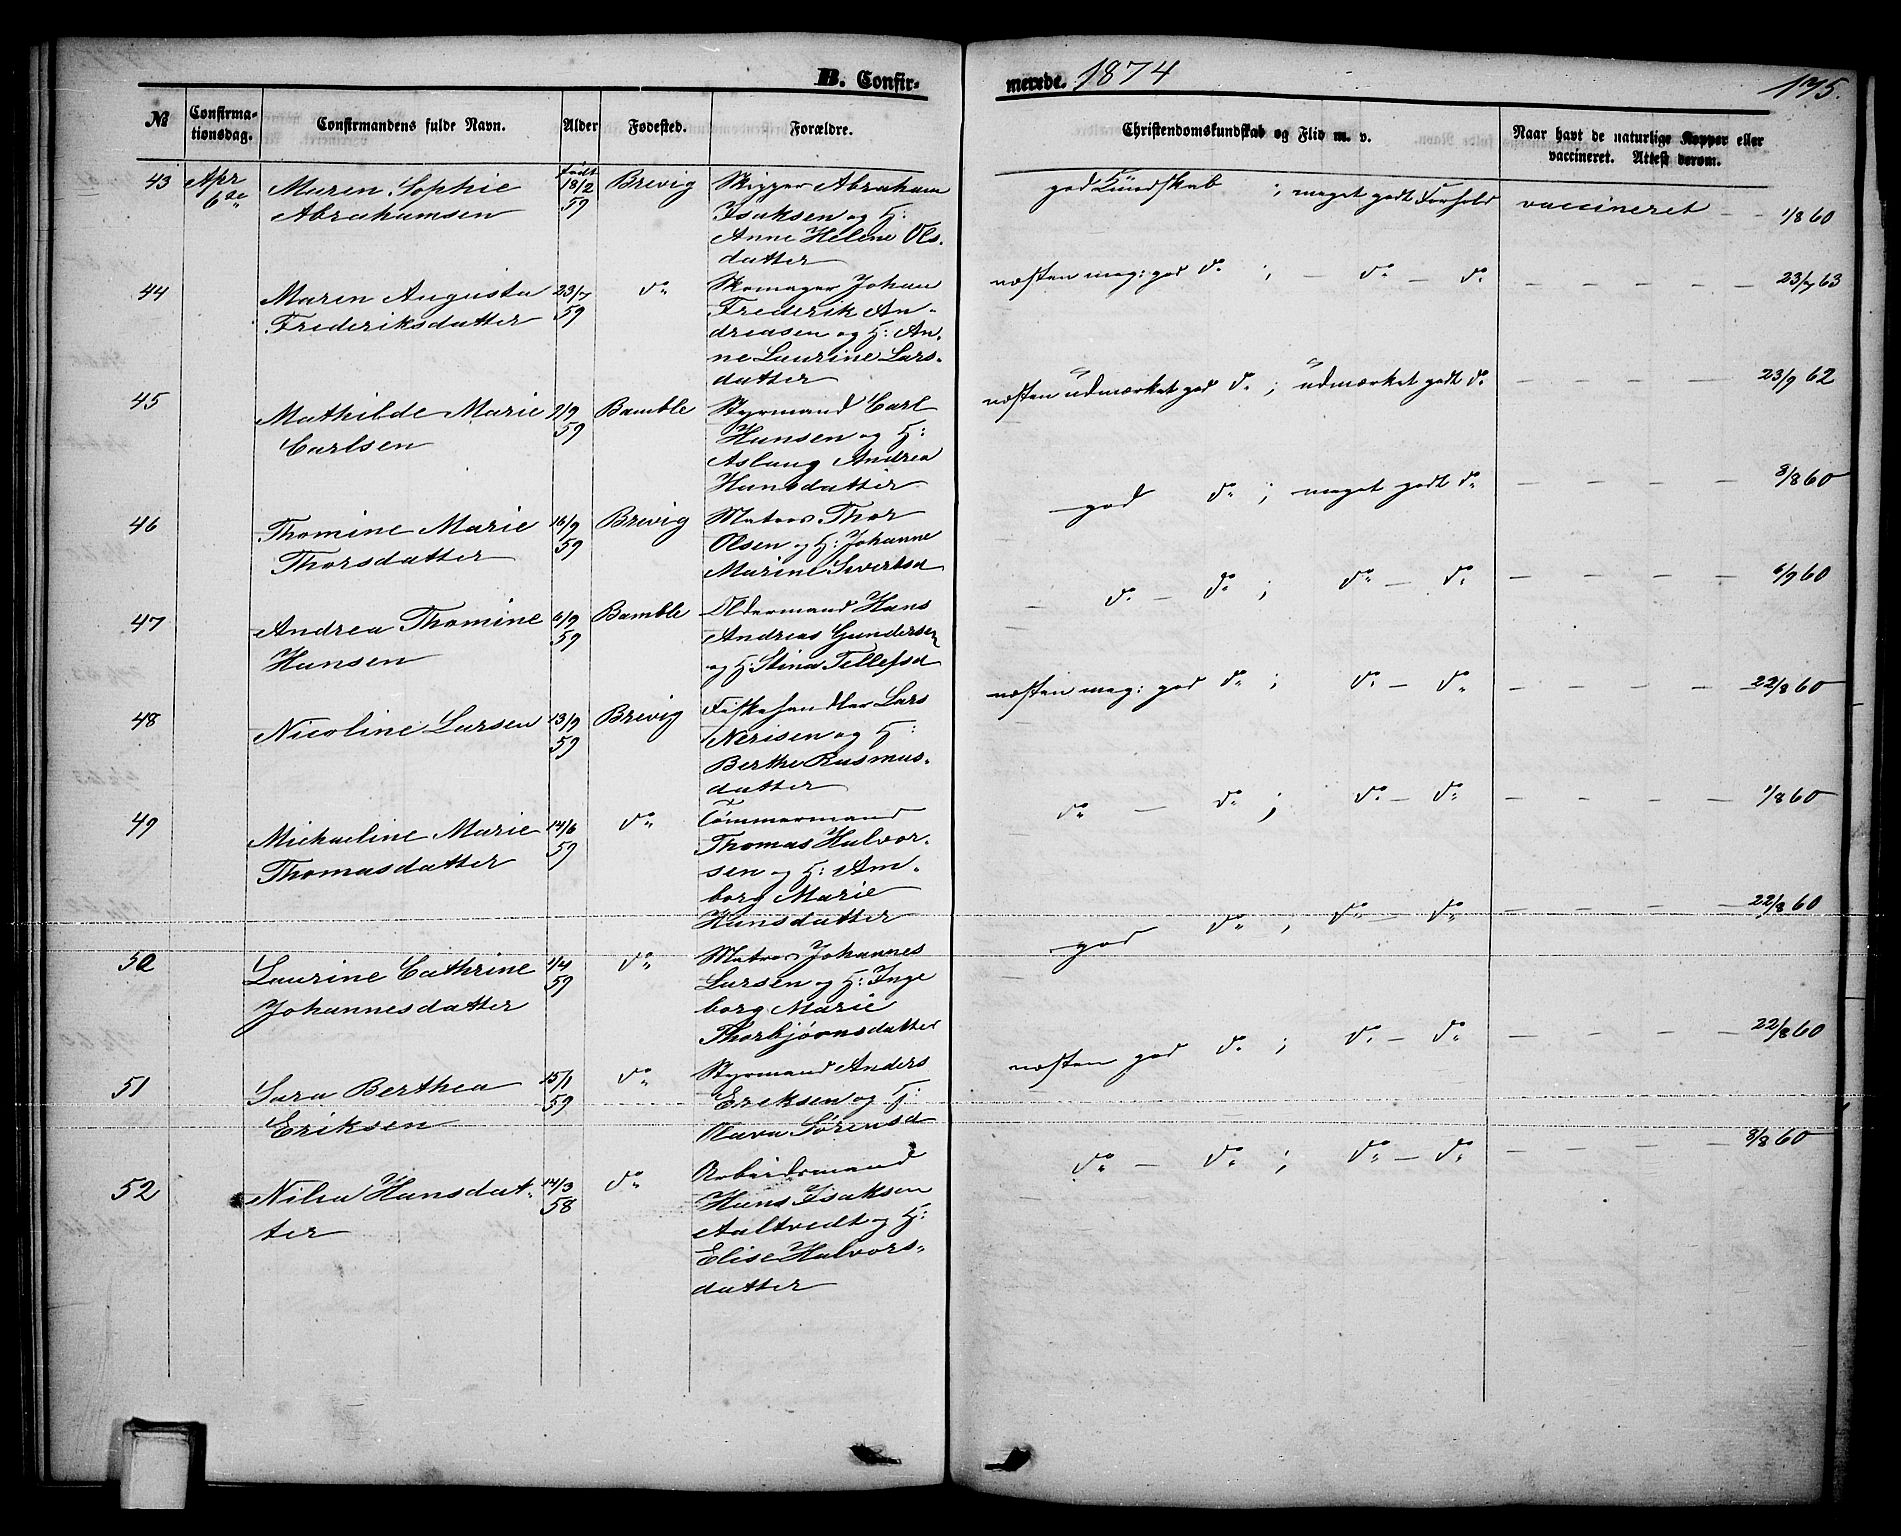 B. Confir-
merede. 1874
175.
№
Confirma-
tionsdag.
Confirmandens fulde Navn.
Alder
Fødested.
Forældre.
Christendomskundskab og Flid m. v.
Naar havt de naturlige Kopper eller
vaccineret. Attest derom.
43 Apr
6te
Maren Sophie
Abrahamsen
Født
18/2
59
Brevig
Skipper Abraham
Isaksen og H:
Anne Helene Ols-
datter
god Kundskab ; meget godt Forhold
vaccineret — — 1/8 60
44
Maren Augusta
Frederiksdatter
23/7
59
do
Skomager Johan
Frederik An-
dreasen og H: An-
ne Laurine Lars-
datter
næsten meg: god do ; — do — do
— — — — 23/7 63
45
Mathilde Marie
Carlsen
2/9
59
Bamble
Styrmand Carl
Hansen og H:
Aslaug Andrea
Hansdatter
næsten udmærket god do ; udmærket godt do
— — — — 23/9 62
46
Thomine Marie
Thorsdatter
16/9
59
Brevig
Matros Thor
Olsen og H: Johanne
Marine Sivertsd
god do ; meget godt do
— — — — 3/8 60
47
Andrea Thomine
Hansen
6/9
59
Bamble
Oldermand Hans
Andreas Gundersen
og H: Stina Tellefsd
— do — do ; do — do
— — — — 6/9 60
48
Nicoline Larsen
13/9
59
Brevig
Fiskehandler Lars
Nerisen og H:
Berthe Rasmus-
datter
næsten meg: god do ; do — do
— — — — 22/8 60
49
Michaeline Marie
Thomasdatter
14/6
59
do
Tømmermand
Thomas Halvor-
sen og H: Am-
borg Marie
Hansdatter
do — do ; do — do
— — — — 1/8 60
50
Laurine Cathrine
Johannesdatter
1/4
59
do
Matros Johannes
Larsen og H: Inge
borg Marie
Thorbjørnsdatter
god do ; do — do
— — — — 22/8 60
51
Sara Berthea
Eriksen
15/1
59
do
Styrmand Anders
Eriksen og H:
Olava Sørensd
næsten god do ; do — do
— — — — 22/8 60
52
Nilia Hansdat-
ter
14/3
58
do
Arbeidsmand
Hans Isaksen
Aaltvedt og H:
Elise Halvors-
datter
do — do ; do — do
— — — — 8/8 60